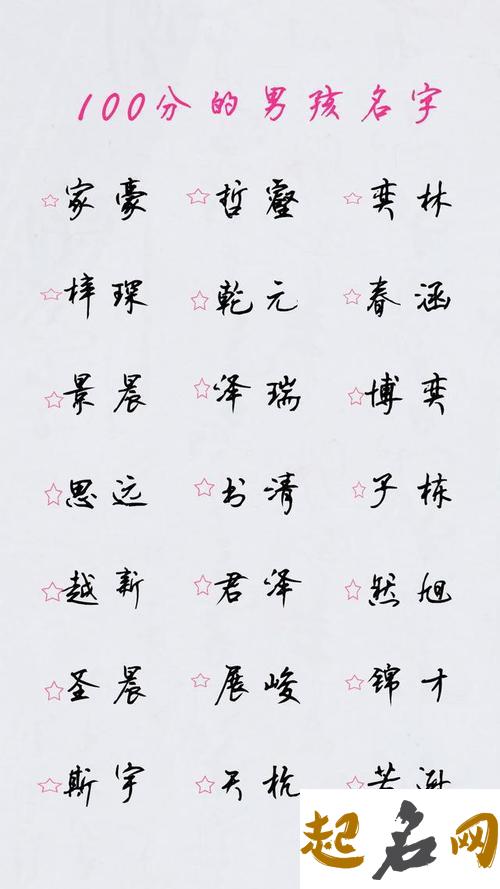 100分的男孩名字
☆家豪 ☆哲睿 ☆奕林
☆梓琛 ☆乾元 ☆春涵
☆景晨 ☆泽瑞 ☆博奕
☆思远 ☆书清 ☆子栋
☆越新 ☆君泽 ☆然旭
☆圣晨 ☆展峻 ☆锦才
☆斯宇 ☆天杭
起名网